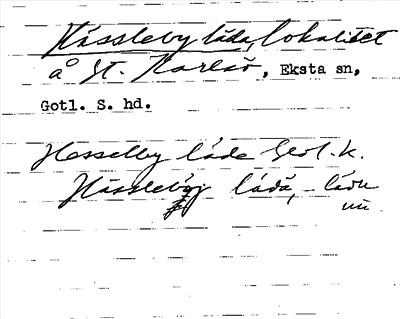 Hässleby låda, lokalitet
å St. Karlsö, Eksta sn,
Gotl. S. hd.
Hesselby låde Geol. k.
Hässleby lådå, -lådu